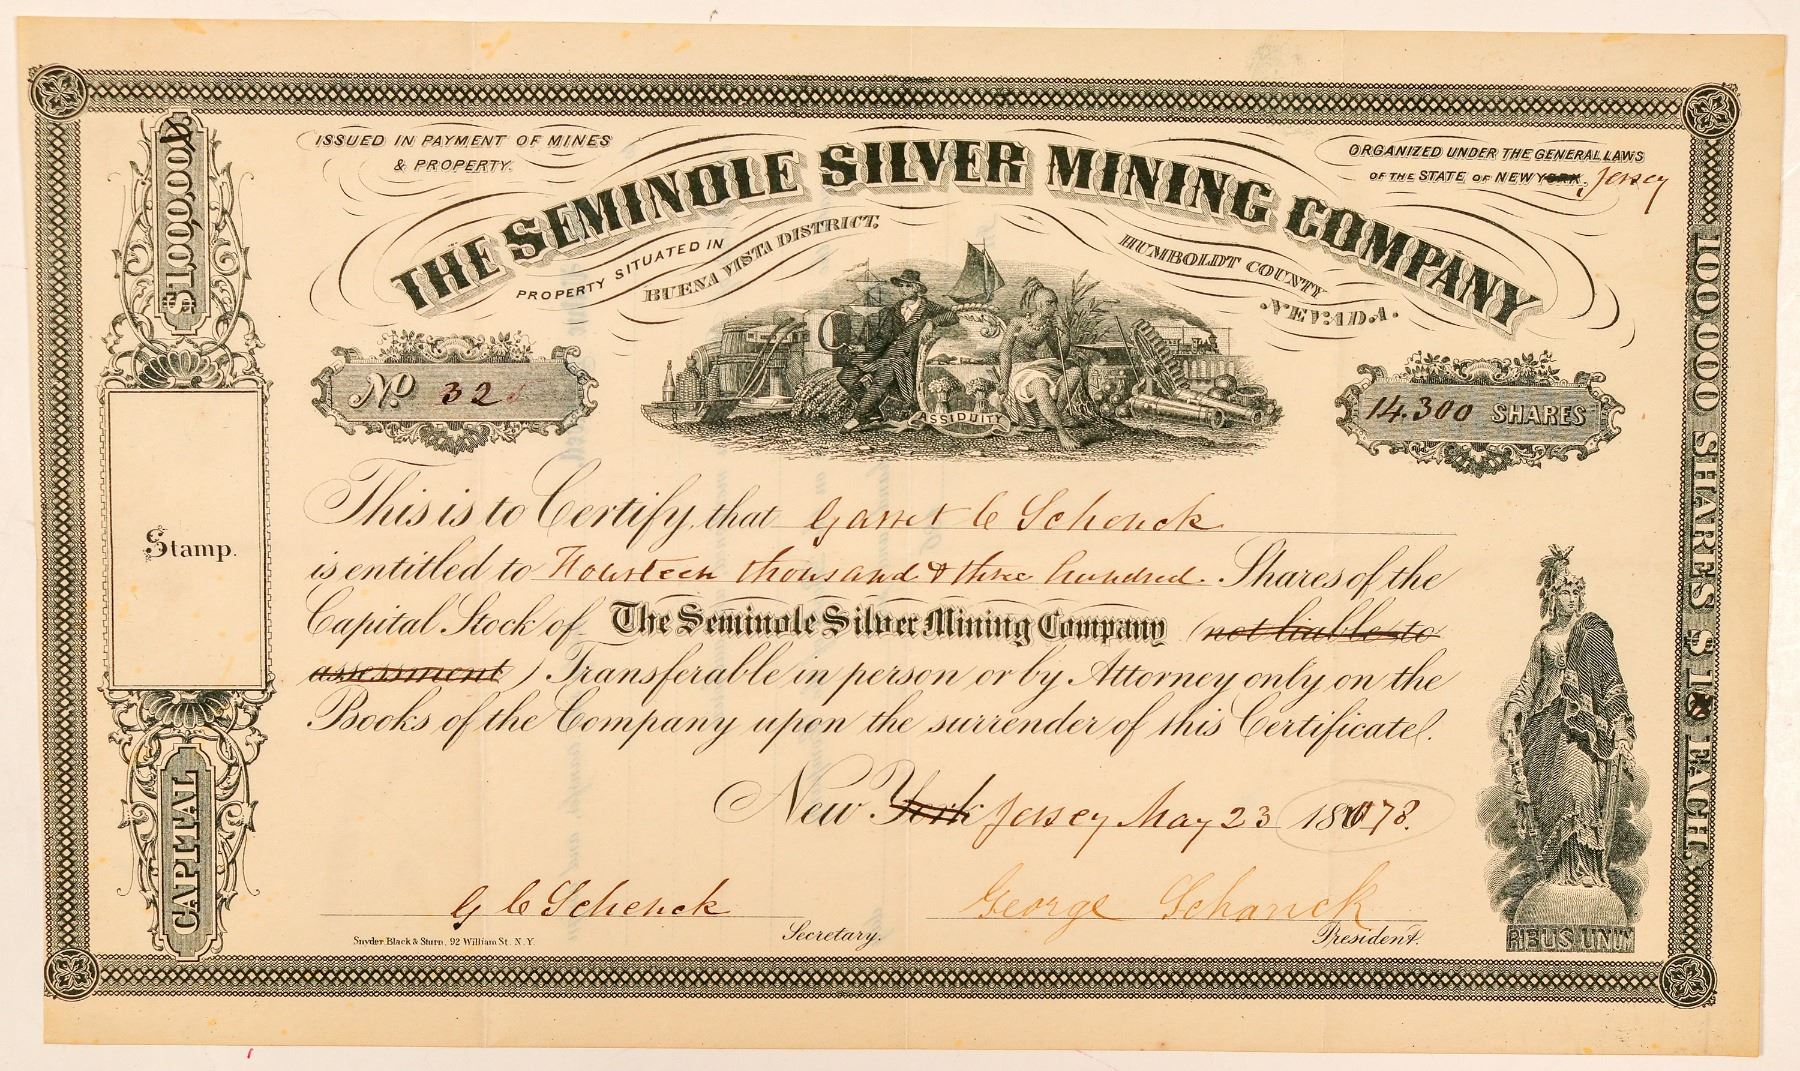 ISSUED IN PAYMENT OF MINES
& PROPERTY.
ORGANIZED UNDER THE GENERAL LAWS
OF THE STATE OF NEW YORK, Jersey
THE SEMINOLE SILVER MINING COMPANY
PROPERTY SITUATED IN
BUENA VISTA DISTRICT,
HUMBOLDT COUNTY
NEVADA.
No 32
ASSIDUITY
14.300 SHARES
$1,000,000
Stamp.
CAPITAL
This is to Certify, that Garret C Schenck
is entitled to Fourteen thousand & three hundred. Shares of the
Capital Stock of The Seminole Silver Mining Company (not liable to
assessment) Transferable in person or by Attorney only on the
Books of the Company upon the surrender of this Certificate.
New York Jersey May 23 1878.
G C Schenck
Secretary.
George Schanck
President.
Snyder Black & Sturn, 92 William St. N.Y.
RIBUS UNUM
100,000 SHARES $1 EACH.